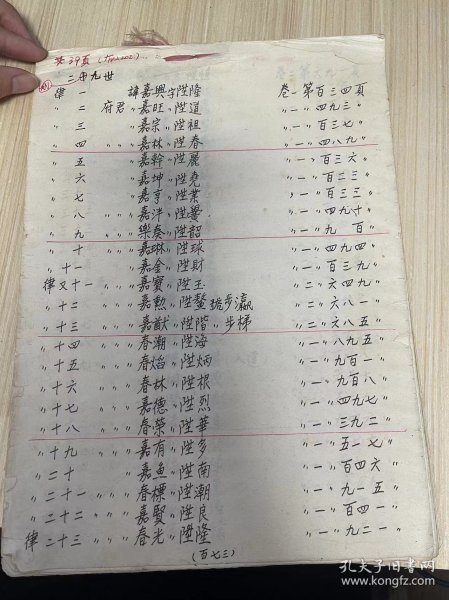 二十九世
律 一 諱嘉興字陞隆 卷一第百三四頁
〃 二 府君〃嘉旺〃陞道 〃一〃四九三〃
〃 三 〃〃〃嘉宗〃陞祖 〃一〃百三七〃
〃 四 〃〃〃嘉林〃陞春 〃一〃四八九〃
〃 五 〃〃〃嘉幹〃陞麗 〃一〃百三六〃
〃 六 〃〃〃嘉坤〃陞堯 〃一〃百二三〃
〃 七 〃〃〃嘉亨〃陞業 〃一〃百三三〃
〃 八 〃〃〃嘉泮〃陞譽 〃一〃四九十〃
〃 九 〃〃〃樂奏〃陞韶 〃一〃九百〃
〃 十 〃〃〃嘉琳〃陞球 〃一〃四九四〃
〃 十一 〃〃〃嘉金〃陞財 〃一〃百三九〃
律又十一 〃〃〃嘉寶〃陞玉 〃二〃六四九〃
〃 十二 〃〃〃嘉勲〃陞鰲號步瀛 〃二〃六八一〃
〃 十三 〃〃〃嘉猷〃陞階〃步梯 〃二〃六八五〃
〃 十四 〃〃〃春潮〃陞海 〃一〃八九五〃
〃 十五 〃〃〃春焰〃陞炳 〃一〃九百一〃
〃 十六 〃〃〃春林〃陞根 〃一〃九百八〃
〃 十七 〃〃〃嘉德〃陞烈 〃一〃四九七〃
〃 十八 〃〃〃春榮〃陞華 〃一〃三九二〃
〃 十九 〃〃〃嘉有〃陞多 〃一〃五一七〃
〃 二十 〃〃〃嘉魚〃陞南 〃一〃百四六〃
〃 二十一 〃〃〃春標〃陞潮 〃一〃九一五〃
〃 二十二 〃〃〃嘉賢〃陞良 〃一〃百四一〃
律 二十三 〃〃〃春光〃陞隆 〃一〃九二一〃
(百七三)
孔夫子旧书网
www.kongfz.com